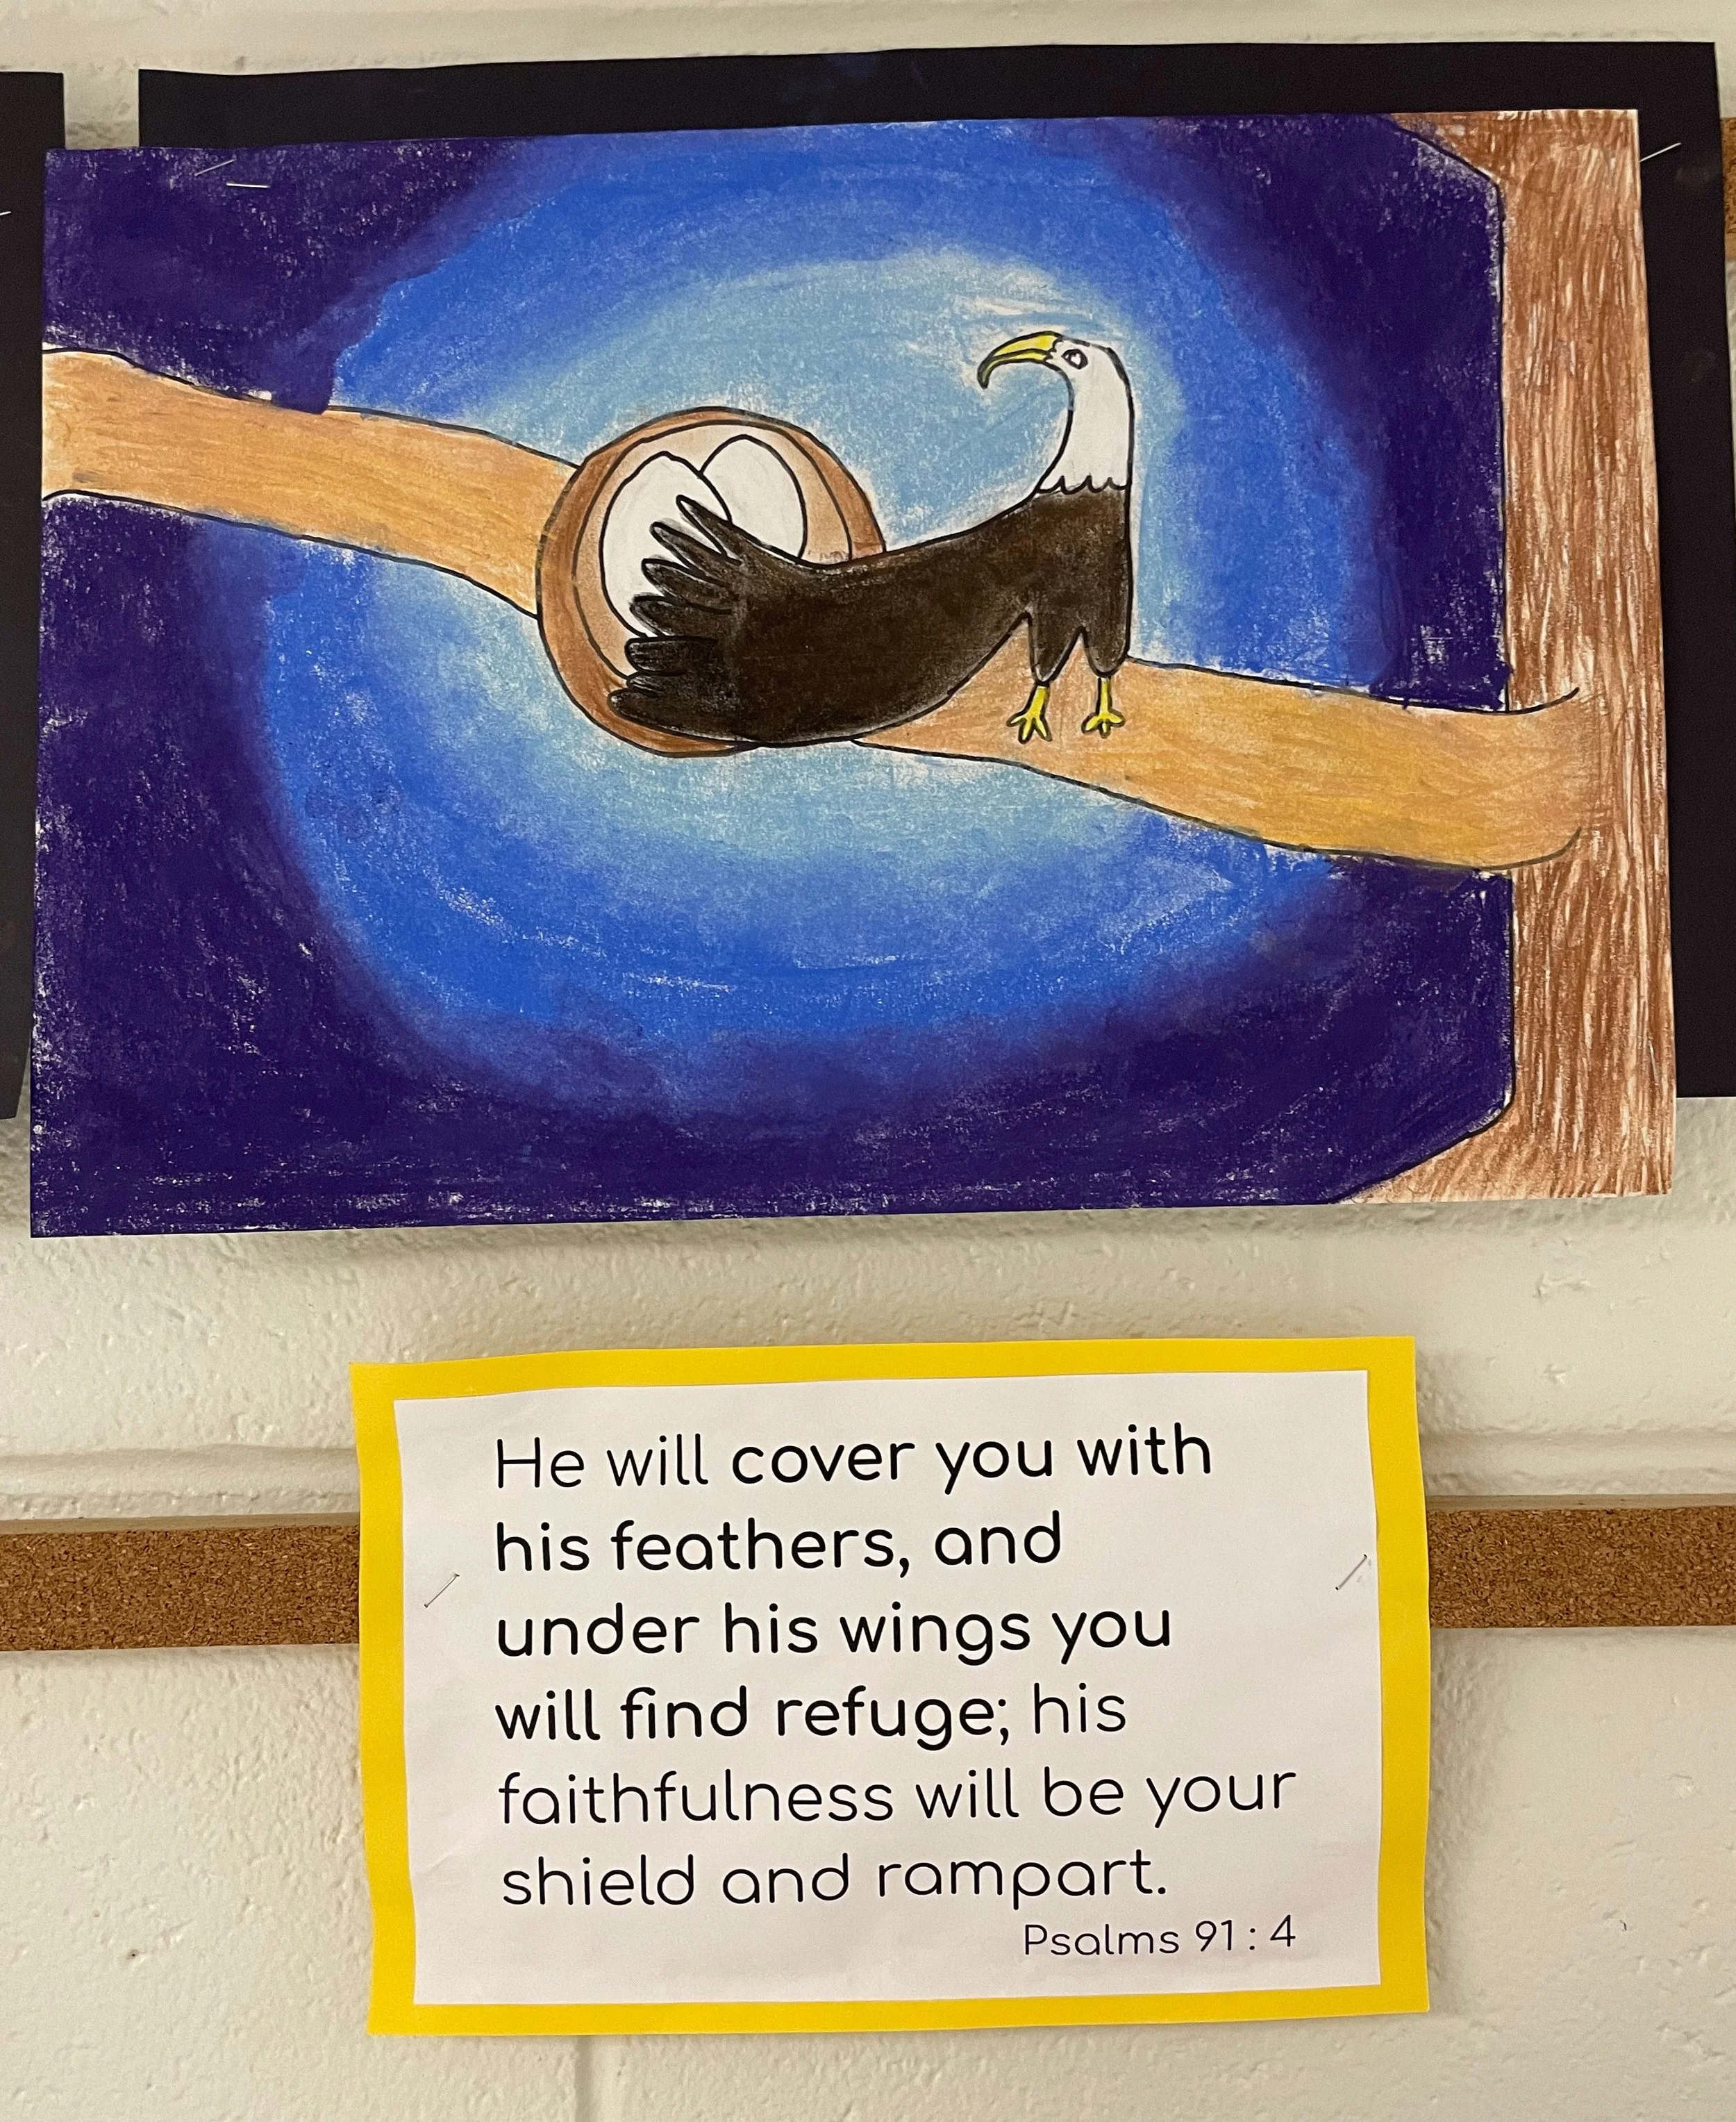 He will cover you with
his feathers, and
under his wings you
will find refuge; his
faithfulness will be your
shield and rampart.
Psalms 91 : 4